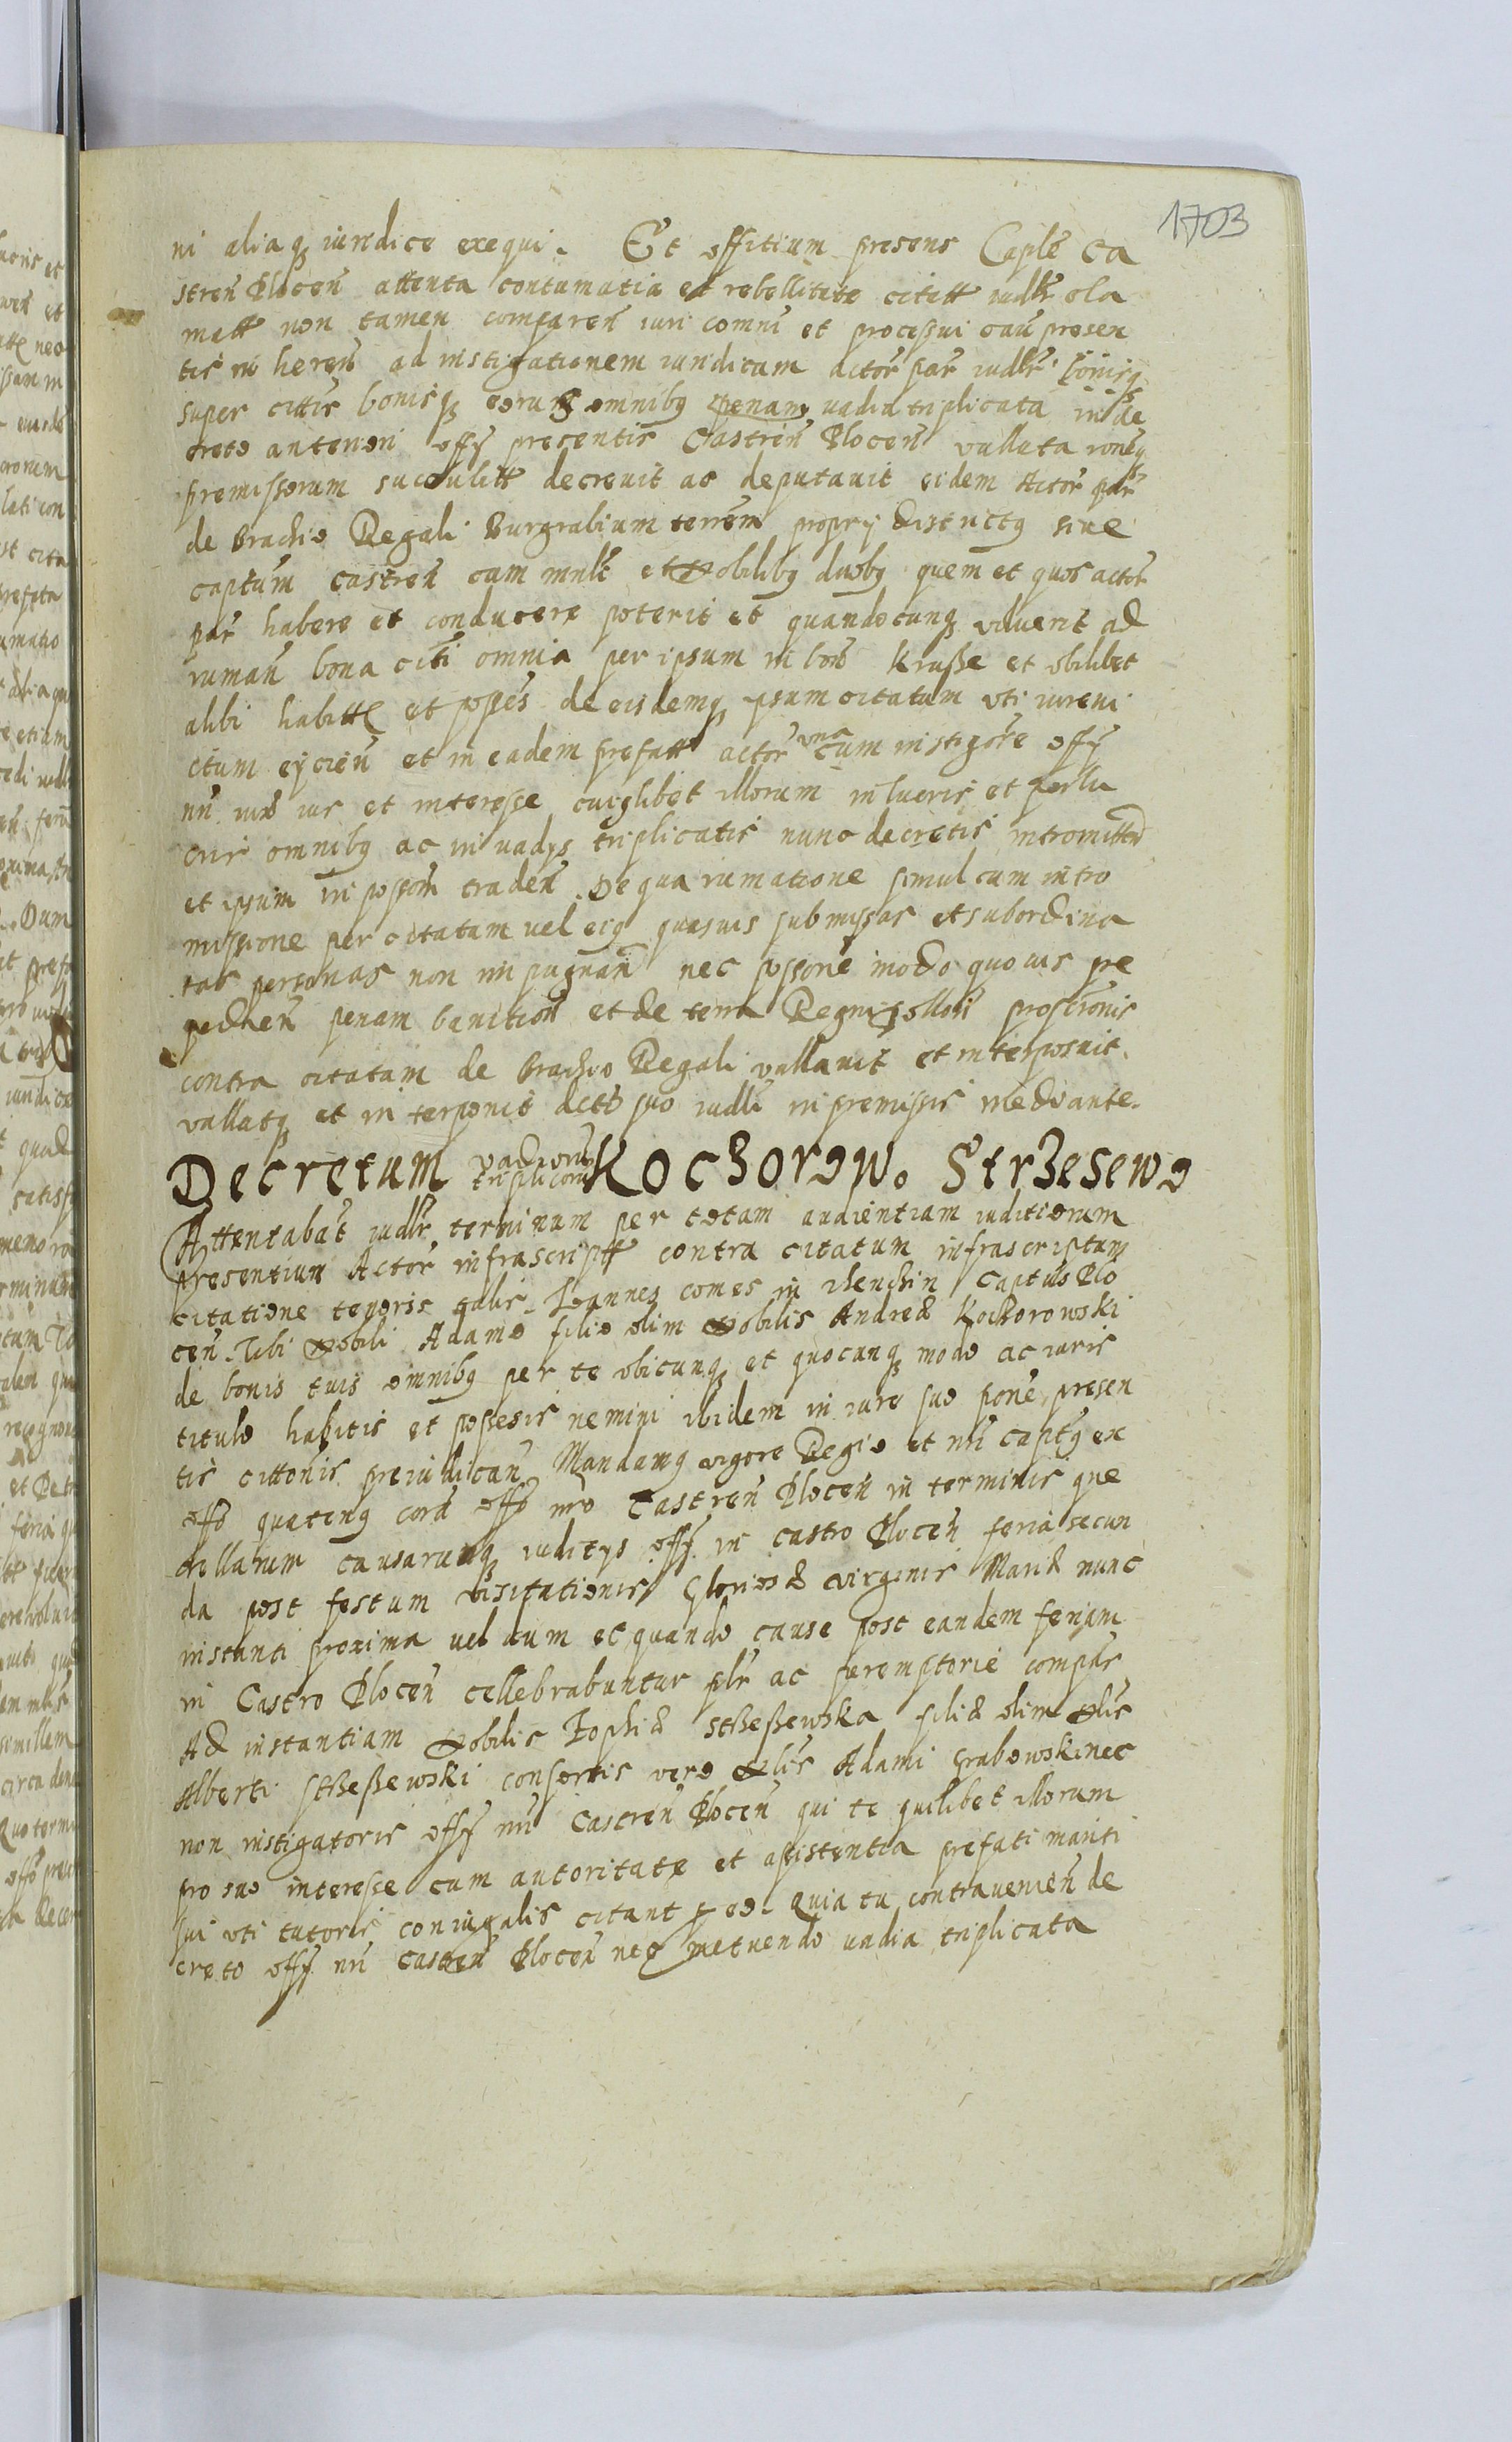 1703
ni aliaq iuridice exequi. Et offitium presens Caple Ca
stren Plocen attenta contumatia et rebellitate citatt iudlr cla
matt non tamen comparen iuri comuni et processui caus presen
tis in heren ad instigationem iuridicam actor par iudlr bonisq
super cittis bonisq eorum omnibq penam vadia triplicata in de
creto anteriori offy precentis Castren Plocen vallata roneq
premissorum succubitt decrevit ac deputavit eidem Actor par
de brachio Regali Burgrabium terren proprij districtq sive
captum castren cum mnlr et Nobilibq duobq quem et quos actor
par habere et conducere poterit et quandocunq voluerit ad
ruman bona citi omnia per ipsum in bon Krusse et vbilibet
alibi habitt et posses de eisdemq ipsum citatum vti iurevi
ctum eycien et in eadem prefatt actor vna cum instigore offy
nri iux ius et interesse cuiqlibet illorum in lucris et perlu
cris omnibq ac in vadys triplicatis nunc decretis intromitten
et ipsum in possom traden. De qua rumatione simul cum intro
missione per citatam vel eiq quasvis submissas et subordina
tas personas non impugnan nec possone modo quovis pre
pedien penam banition et de terra Regni proscronis
contra citatam de brachio Regali vallavit et interposuit.
vallatq et in terponit dctto suo iudlr in premissis mediante.
Decretum vadiorum triplicorum Kochorow. Strzesewo
Attentabat iudlr terminum per totam audientiam iuditiorum
presentium Actor infrascriptt contra citatum infrascriptam
citatione tenoris talis. Ioannes comes in Captus Plo
cen. Tibi Nobili Adamo filio olim Nobilis Andreæ Kochorowski
de bonis tuis omnibq per te vbicunq et quocunq modo ac iuris
titulo habitis et possesis nemini ibidem in iure suo pone presen
tis cittonis preiudican Mandamq vigore Regio et nri captq ex
offo quatenq cora offo nro Castren Plocen in terminis que
rellarum causarumq iuditys offy in castro Plocen feria secun
da post festum visitationis Gloriosæ virginis Mariæ nunc
instanti proxima vel dum et quando cause post eandem feriam
in Castro Plocen cellebrabuntur plr ac peremptorie compar
Ad instantiam Nobilis Zophiæ stßeßewska filiæ olim Nlis
Alberti stßeßewski consortis vero Nlis Adami Grabowski nec
non instigatoris offy nri Castren Plocen qui te quilibet illorum
pro suo interesse cum autoritate et assistentia prefati mariti
sui vti tutoris coniugalis citant p eo. Quia tu contravenien de
creto offy nri Castren Plocen nec metuendo vadia triplicata